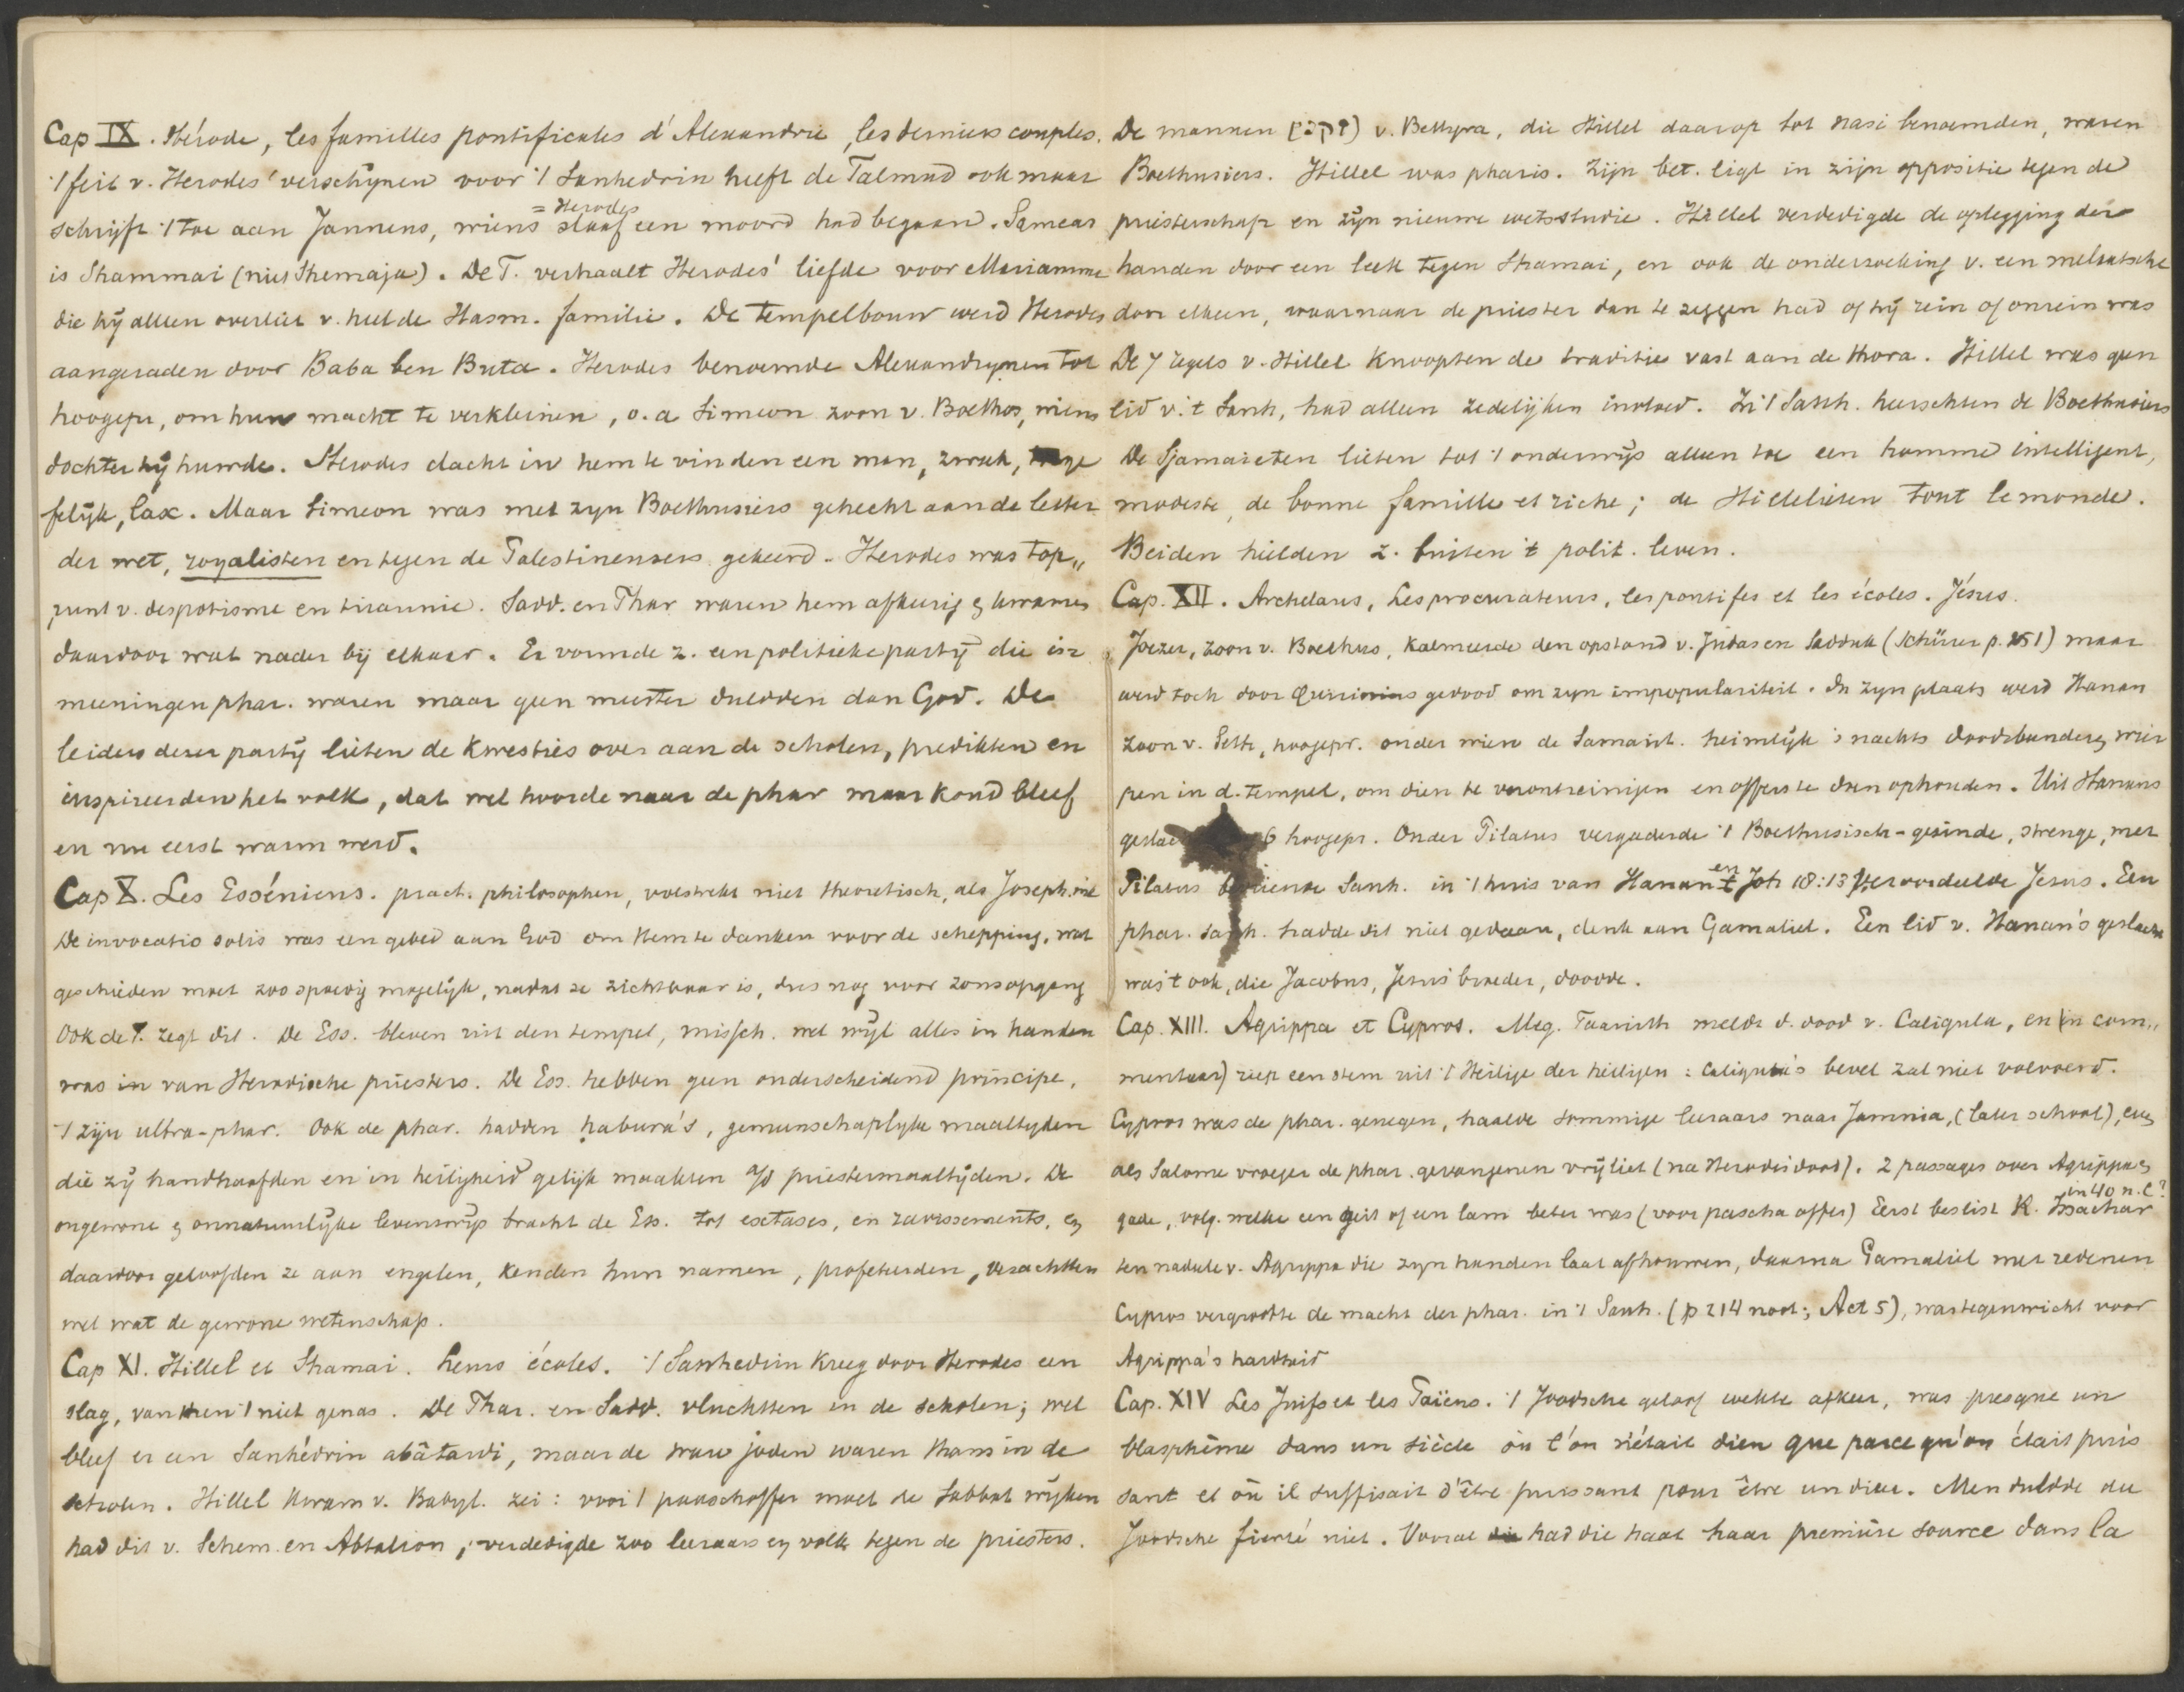 Cap IX. Hérode, les familles pontificales d'Alexandrie, les derniers couples.
't feit v. Herodes' verschijnen voor 't Sanhedrin heeft de Talmud ook maar
schrijft 't toe aan Jannens, wiens slaaf een moord had begaan. Sameas
= Herodes
is Shammai (niet Shemaja). De T. verhaalt Herodes' liefde voor Mariamme
die hij alleen overliet v. heel de Hasm. familie. De tempelbouw werd Herodes
aangeraden door Baba ben Buta. Herodes benoemde Alexandrynen tot
hoogepr, om hun macht te verkleinen, o.a Simeon zoon v. Boethos, wiens
dochter hij huwde. Herodes dacht in hem te vinden een man, zwak,
felijk, lax. Maar Simeon was met zyn Boethusiers gehecht aan de letter
der wet, royalisten en tegen de Palestinensers gekeerd. Herodes was top„
punt v. despotisme en tirannie. Sadd. en Phar waren hem afkeurig en kwamen
daardoor wat nader bij elkaar. Er vormde z. een politieke partij die in
meeningen phar. waren maar geen meester duldden dan God. De
leiders dezer partij lieten de kwesties over aan de scholen, predikten en
inspireerden het volk, dat wel hoorde naar de phar maar koud bleef
en nu eerst warm werd.
Cap X. Les Esséniens. pract. philosophen, volstrekt niet theoretisch, als Joseph. wil
De invocatio solis was een gebed aan God om Hem te danken voor de schepping, wat
geschieden moet zoo spoedig mogelijk, nadat ze zichtbaar is, dus nog voor zonsopgang
Ook de T. zegt dit. De Ess. bleven uit den tempel, missch. wel wijl alles in handen
was in van Herodische priesters. De Ess. hebben geen onderscheidend principe,
't zijn ultra-phar. Ook de phar. hadden habura's, gemeenschaplyke maaltyden
die zij handhaafden en in heiligheid gelijk maakten a/d priestermaaltijden. De
ongewone en onnatuurlijke levenswijs bracht de Ess. tot extases, en ravissements, en
daardoor geloofden ze aan engelen, kenden hun namen, profeteerden, verachtten
wel wat de gewone wetenschap.
Cap XI. Hillel et Shamai. Leurs écoles. 't Sanhedrin kreeg door Herodes een
slag, van dien 't niet genas. De Phar. en Sadd. vluchtten in de scholen; wel
bleef er een Sanhédrin abâtardi, maar de ware joden waren thans in de
scholen. Hillel kwam v. Babyl. zei: voor 't paaschoffer moet de Sabbat wijken
had dit v. Schem. en Abtalion, verdedigde zoo leeraars en volk tegen de priesters.
De mannen (זקני) v. Bethyra, die Hillel daarop tot nasi benoemden, waren
Boethusiers. Hillel was pharis. Zijn bet. ligt in zijn oppositie tegen de
priesterschap en zijn nieuwe wetsstudie. Hillel verdedigde de oplegging der
handen door een leek tegen Shamai, en ook de onderzoeking v. een melaatsche
door elkeen, waarnaar de priester dan te zeggen had of hij rein of onrein was
De 7 regels v. Hillel knoopten de traditie vast aan de thora. Hillel was geen
lid v. 't Sanh, had alleen zedelijken invloed. In 't Sanh. heerschten de Boethusiers
De Sjamaieten lieten tot 't onderwijs alleen toe een homme intelligent,
modeste, de bonne famille et riche; de Hillelieten tout le monde.
Beiden hielden z. buiten 't polit. leven.
Cap. XII. Archelaus, Les procurateurs, les pontifes et les écoles. Jésus.
Joezer, zoon v. Boethus, kalmeerde den opstand v. Judas en Saddok (Schürer p. 251) maar
werd toch door Quirinius gedood om zyn impopulariteit. In zyn plaats werd Hanan
zoon v. Seth, hoogepr. onder wien de Samarit. heimlijk 's nachts doodsbeenderen wier
pen in d. tempel, om dien te verontreinigen en offers te doen ophouden. Uit Hanans
geslac 6 hoogepr. Onder Pilatus vergaderde 't Boethusisch-gezinde, strenge, met
Pilatus bevriende Sanh. in 't huis van Hanan en Joh 18:13 veroordeelde Jesus. Een
phar. sanh. hadde dit niet gedaan, denk aan Gamaliel. Een lid v. Hanan's geslacht
was 't ook, die Jacobus, Jesus' broeder, doodde.
Cap. XIII. Agrippa et Cypros. Meg. Taanith meldt d. dood v. Caligula, en (in com„
mentaar) riep een stem uit 't Heilige der heiligen: Caligula's bevel zal niet volvoerd.
Cypros was de phar. genegen, haalde sommige leeraars naar Jamnia, (later school), even
als Salome vroeger de phar. gevangenen vrijliet (na Herodes' dood). 2 passages over Agrippa en
gade, volg. welke een geit of een lam beter was (voor pascha offer) Eerst beslist R. Issachar
in 40 n. C?
ten nadeele v. Agrippa die zyn handen laat afhouwen, daarna Gamaliel met redenen
Cypros vergrootte de macht der phar. in 't Sanh. (p 214 noot; Act 5), was tegenwicht voor
Agrippa's hardheid
Cap. XIV Les Juifs et les Païens. 't Joodsche geloof wekte afkeer, was presque un
blasphème dans un siècle où l'on n'était dieu que parce qu'on était puis
sant et où il suffisait d'être puissant pour être un dieu. Men duldde die
Joodsche fierté niet. Vooral had die haat haar première source dans la